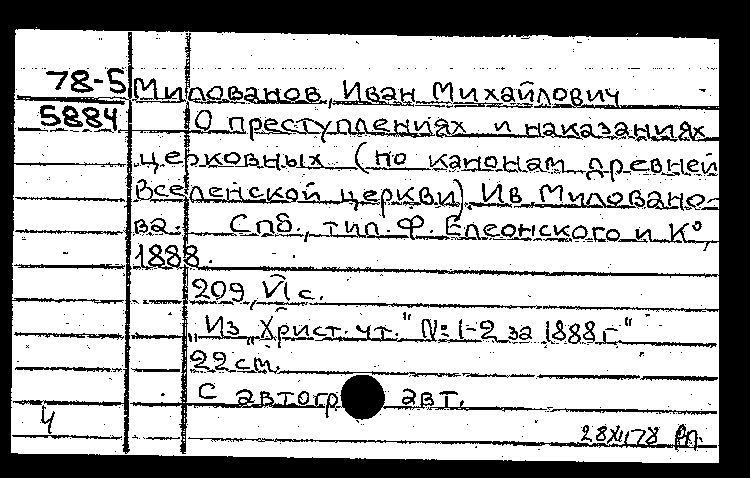 78-5 Милованов, Иван Михайлович
5884 О преступлениях и наказаниях
церковных (по канонам древней
Вселенской церкви). Ив. Миловано-
ва. Спб., тип. Ф. Елеонского и К°,
1888.
209, VI с.
„Из „Христ. чт." № 1-2 за 1888 г."
22 см.
С автогр авт.
Ч
28XI178 рл.